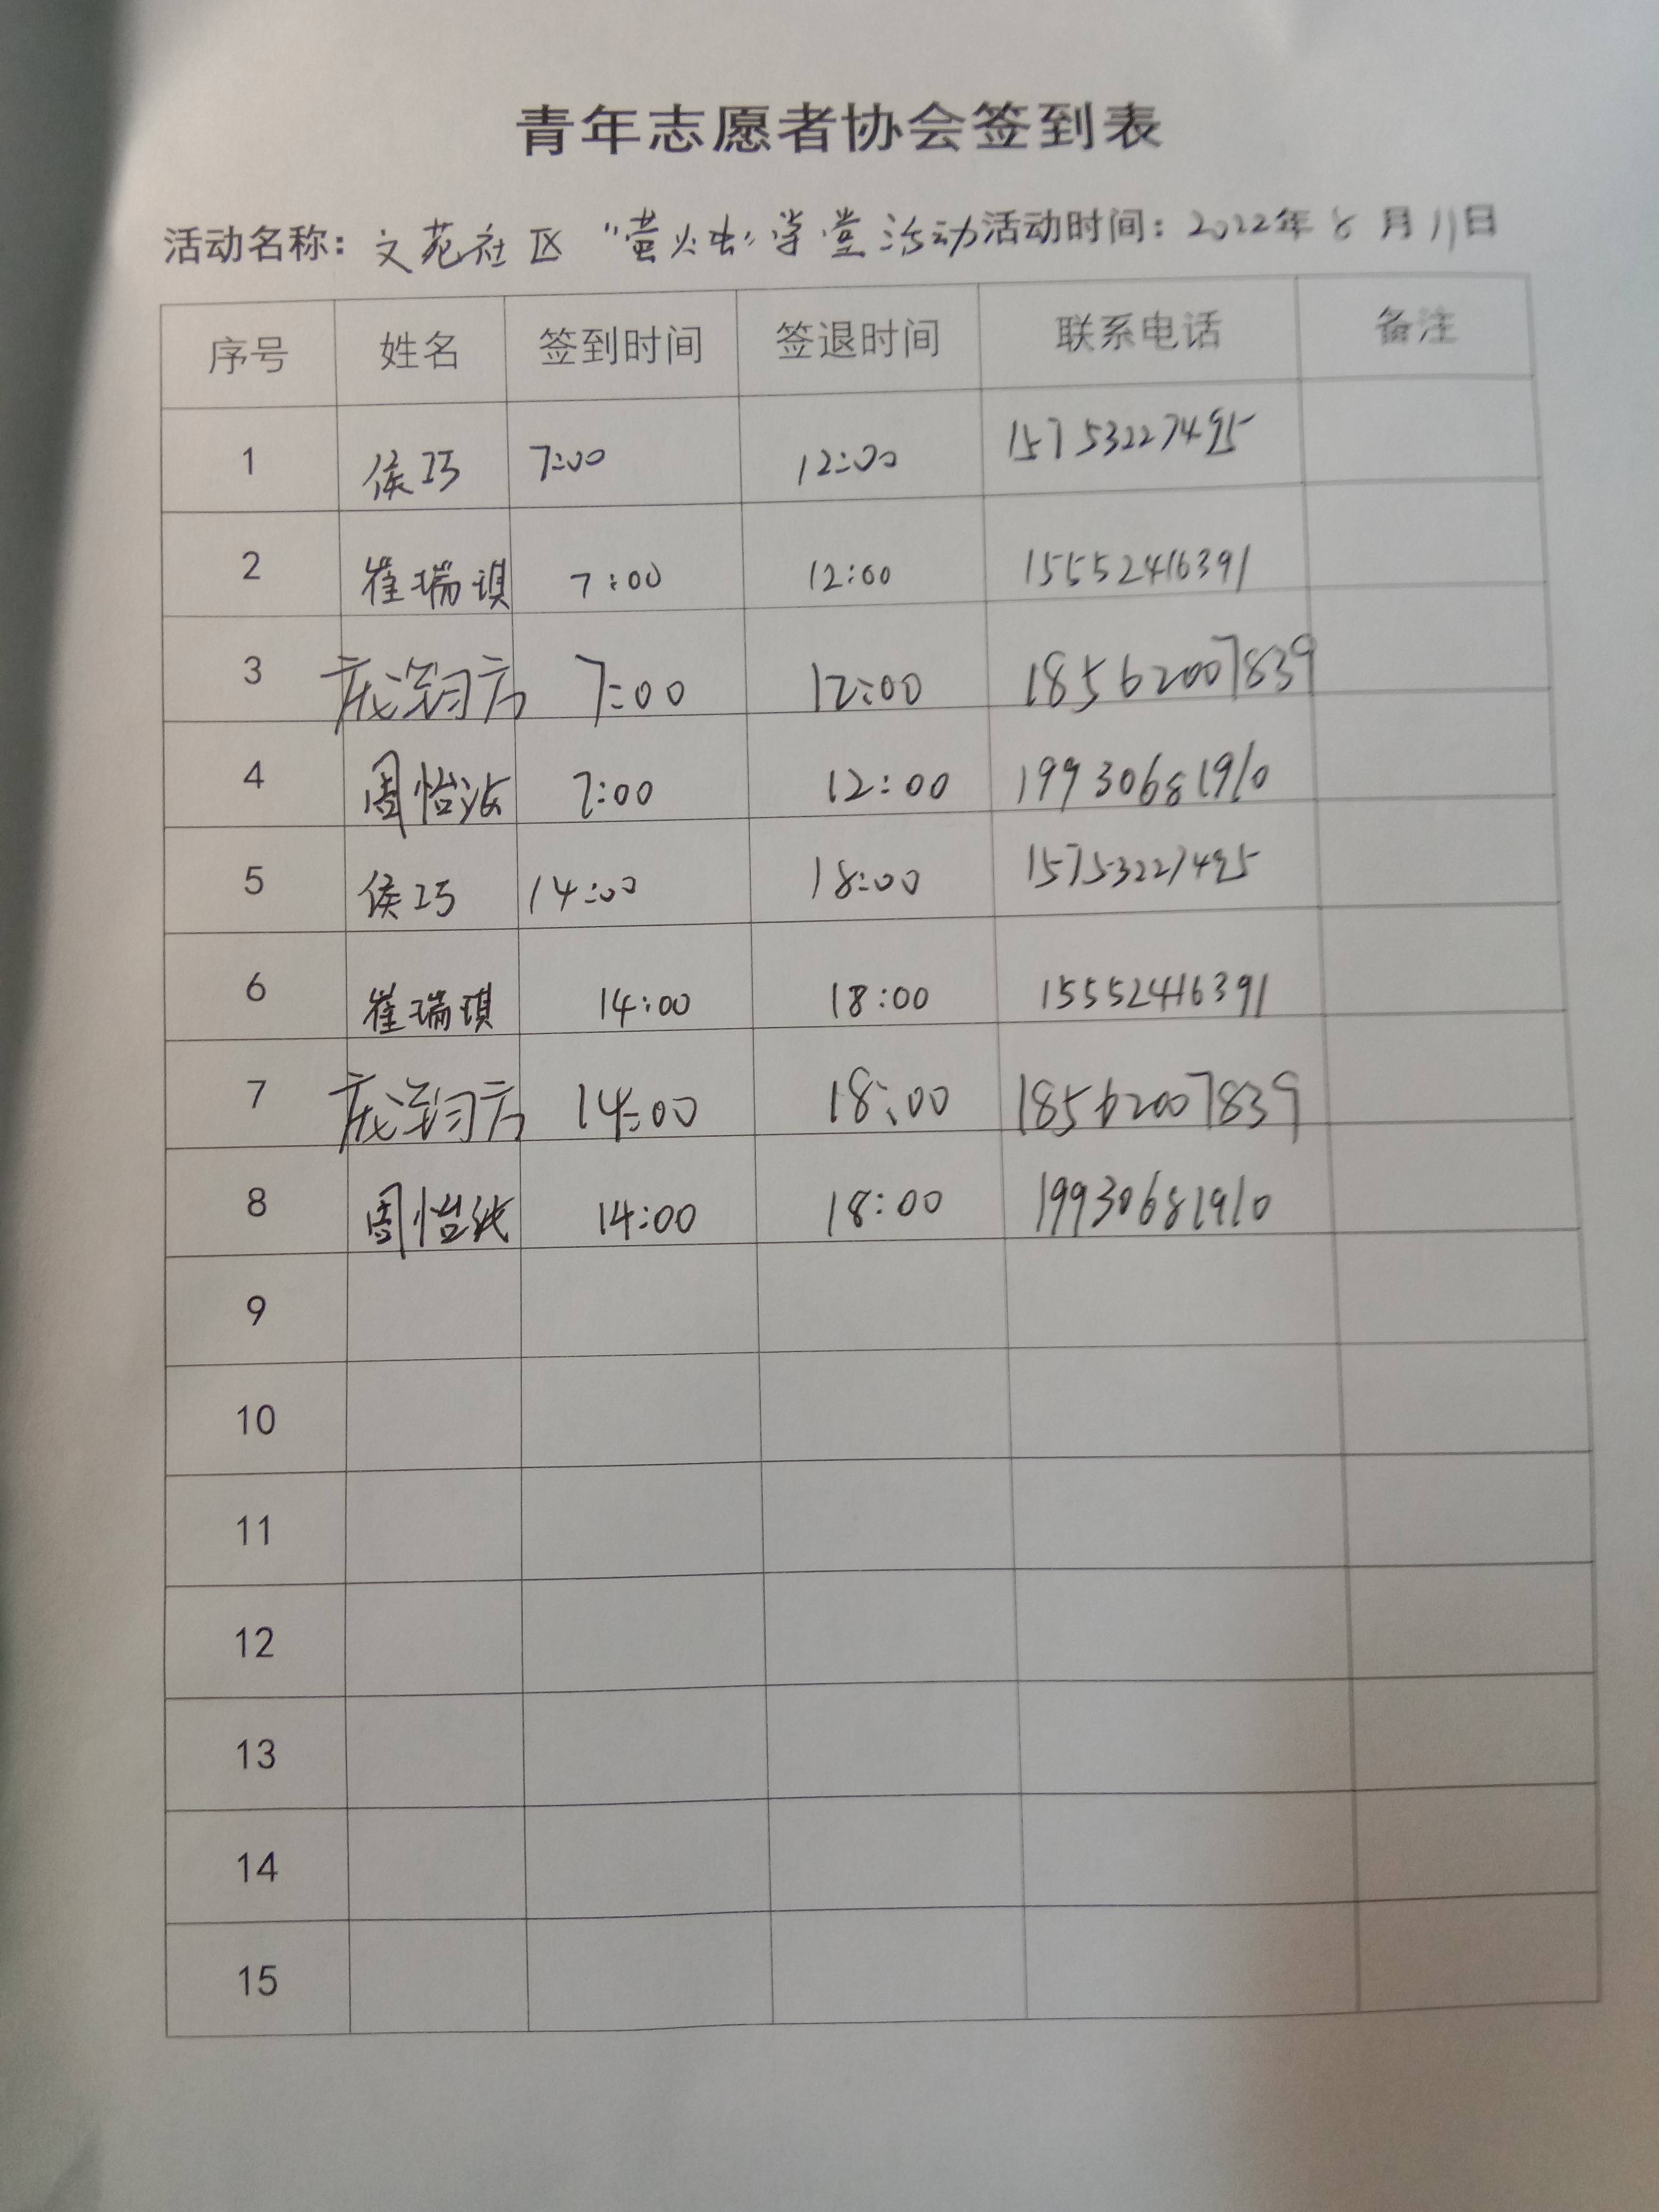 青年志愿者协会签到表
活动名称：文苑社区“萤火虫”学堂活动 活动时间：2022年8月11日
序号 姓名 签到时间 签退时间 联系电话 备注
1 侯巧 7:00 12:00 15753227495
2 崔瑞琪 7:00 12:00 15552416391
3 7:00 12:00 18562007839
4 周怡 7:00 12:00 19930681910
5 侯巧 14:00 18:00 15753227495
6 崔瑞琪 14:00 18:00 15552416391
7 14:00 18:00 18562007839
8 周怡 14:00 18:00 19930681910
9
10
11
12
13
14
15